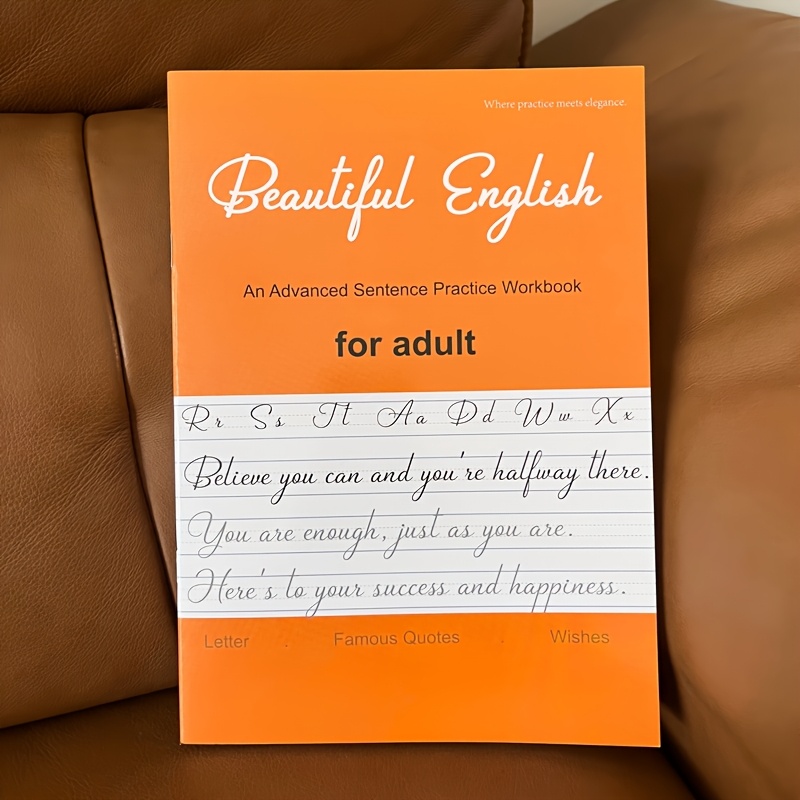 Where practice meets elegance.
Beautiful English
An Advanced Sentence Practice Workbook
for adult
Rr Ss Tt Aa Dd Ww Xx
Believe you can and you're halfway there.
You are enough, just as you are.
Here's to your success and happiness.
Letter . Famous Quotes . Wishes